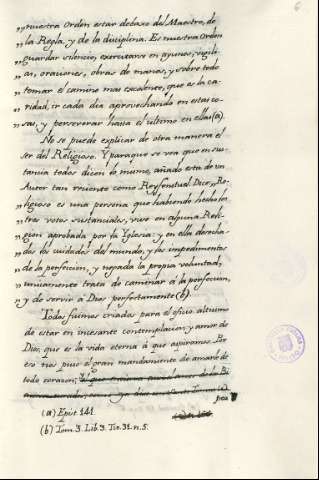 6
„nuestra Orden estar debaxo del Maestro, de
„la Regla, y de la disciplina. Es nuestra Orden
„guardar silencio, exercitarse en ayunos, vigili-
„as, oraciones, obras de manos, y sobre todo
„tomar el camino mas excelente, que es la ca-
„ridad, ir cada dia aprovechando en estas co-
„sas, y perseverar hasta el ultimo en ellas (a).
No se puede explicar de otra manera el
ser del Religioso. Y paraque se vea que en sus-
tancia todos dicen lo mismo, añado esta de un
Autor tan reciente como Reyfentual. Dice: „Re-
„ligioso es una persona que habiendo hecho los
„tres votos sustanciales, vive en alguna Reli-
„gion aprobada por la Yglesia: y en ella desecha-
„dos los cuidados del mundo, y los impedimentos
„de la perfeccion, y negada la propia voluntad,
„unicamente trata de caminar á la perfeccion,
„y de servir á Dios perfectamente (b).
Todos fuimos criados para el oficio altissimo
de estar en incesante contemplacion y amor de
Dios, que es la vida eterna á que aspiramos. Por
eso nos puso el gran mandamiento de amarle de
todo corazon;
para
(a) Epist. 141.
(b) Tom. 3. Lib. 3. Tit. 31. n. 5.